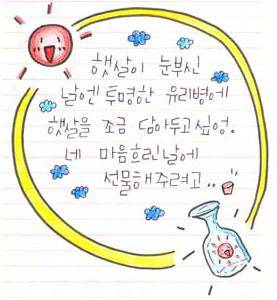 햇살이 눈부신
날엔 투명한 유리병에
햇살을 조금 담아두고싶엉.
네 마음흐린날에
선물해주려고..